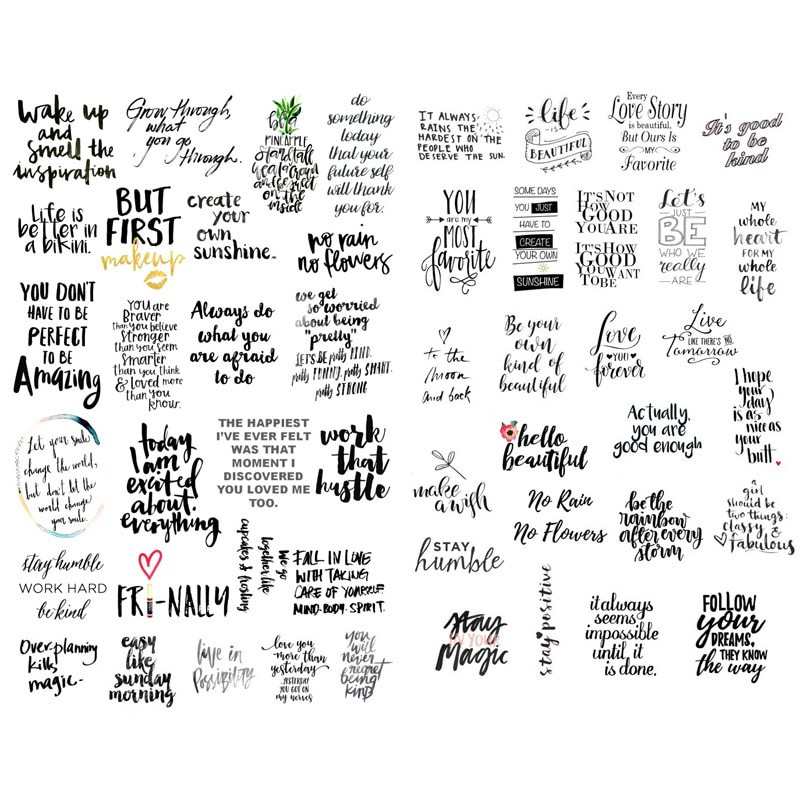 wake up
and
smell the
inspiration
Grow through,
what
you go
through.
be a
PINEAPPLE
stand tall
wear a crown
and be sweet
on the
inside
do
something
today
that your
future self
will thank
you for.
Life is
better in
a bikini.
BUT
FIRST
makeup
create
your
own
sunshine.
no rain
no flowers
YOU DON'T
HAVE TO BE
PERFECT
TO BE
Amazing
you are
Braver
than you believe
Stronger
than you seem
Smarter
than you think
& Loved more
than you
know.
Always do
what you
are afraid
to do
we get
so worried
about being
"pretty"
LET'S BE pretty KIND.
pretty FUNNY. pretty SMART.
pretty STRONG
Let your smile
change the world,
but don't let the
world change
your smile.
today
I am
excited
about
everything
THE HAPPIEST
I'VE EVER FELT
WAS THAT
MOMENT I
DISCOVERED
YOU LOVED ME
TOO.
work
that
hustle
stay humble
WORK HARD
be kind
FRI-NALLY
we go
together like
cupcakes & frosting
FALL IN LOVE
WITH TAKING
CARE OF YOURSELF
MIND. BODY. SPIRIT.
Over-planning
kills
magic.
easy
like
sunday
morning
live in
possibility
love you
more than
yesterday
YESTERDAY
YOU GOT ON
my nerves
you
will
never
regret
being
kind
IT ALWAYS
RAINS THE
HARDEST ON THE
PEOPLE WHO
DESERVE THE SUN.
life
IS
BEAUTIFUL
Every
Love Story
is beautiful,
But Ours Is
MY
Favorite
It's good
to be
kind
YOU
are my
MOST
favorite
SOME DAYS
YOU JUST
HAVE TO
CREATE
YOUR OWN
SUNSHINE
IT'S NOT
HOW
GOOD
YOU ARE
IT'S HOW
GOOD
YOU WANT
TO BE
Let's
JUST
BE
WHO WE
really
ARE
MY
whole
heart
FOR MY
whole
life
to the
moon
and back
Be your
own
kind of
beautiful
Love
YOU
forever
Live
LIKE THERE'S NO
Tomorrow
I hope
your
day
is as
nice as
your
butt.
make
a wish
hello
beautiful
Actually,
you are
good enough
No Rain
No Flowers
be the
rainbow
after every
storm
a
girl
should be
two things:
classy &
fabulous
STAY
humble
stay
IN YOUR
Magic
stay positive
it always
seems
impossible
until, it
is done.
FOLLOW
your
DREAMS,
THEY KNOW
the way